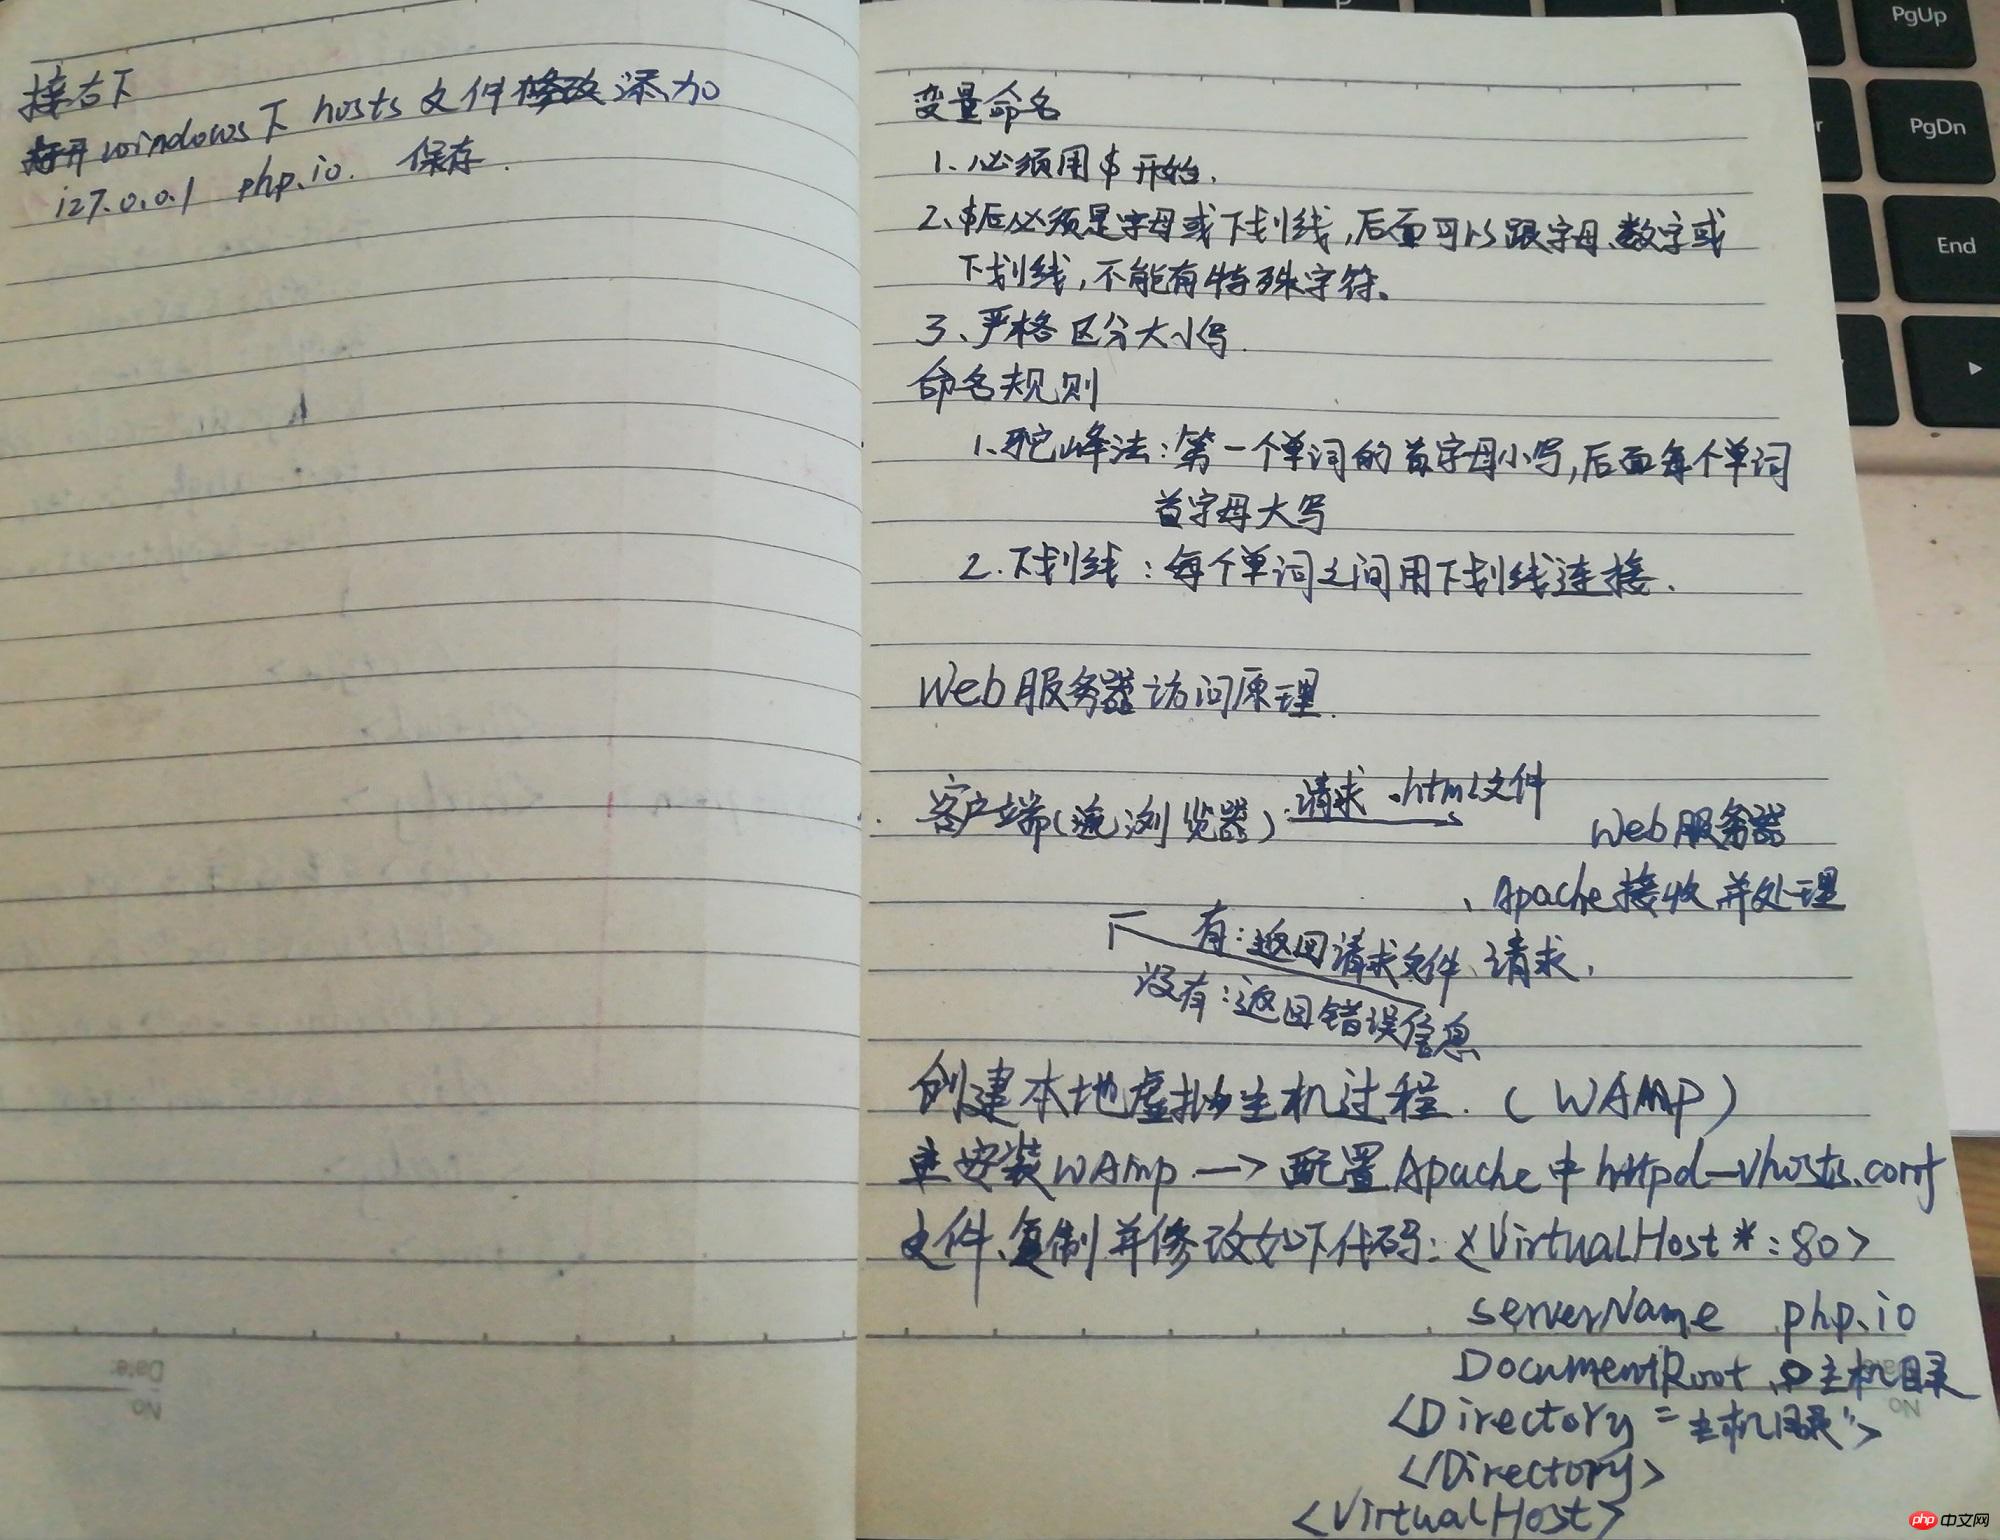 接右下
打开windows下 hosts 文件修改添加
127.0.0.1 php.io. 保存.
变量命名
1、必须用$开始.
2、$后必须是字母或下划线,后面可以跟字母、数字或
下划线,不能有特殊字符。
3、严格区分大小写.
命名规则
1、驼峰法:第一个单词的首字母小写,后面每个单词
首字母大写
2.下划线:每个单词之间用下划线连接.
Web服务器访问原理.
客户端(浏览器) 请求 .html文件
Web服务器
、Apache接收并处理
有:返回请求文件、请求.
没有:返回错误信息
创建本地虚拟主机过程.(WAMP)
安装WAmp —> 配置Apache中httpd-vhosts.conf
文件、复制并修改如下代码:<VirtualHost *:80>
serverName php.io
DocumentRoot 主机目录
<Directory "主机目录">
</Directory>
<VirtualHost>
PgUp
PgDn
End
No
Date:
No
php 中文网